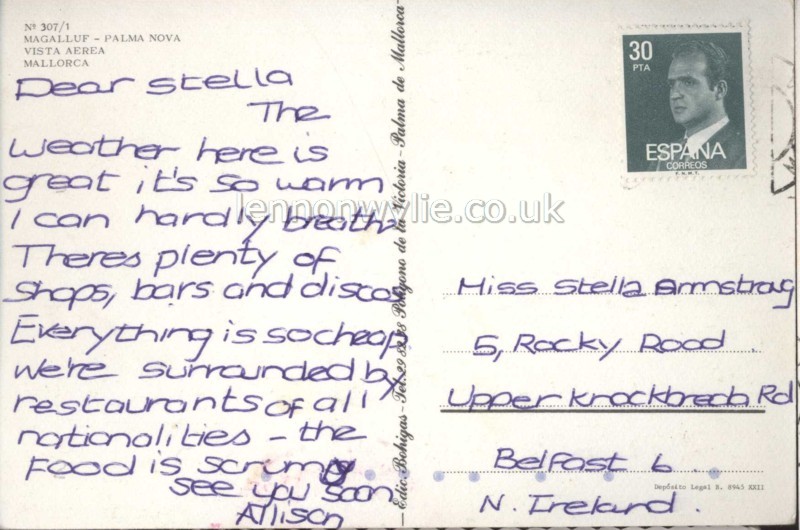 Nº 307/1
MAGALLUF - PALMA NOVA
VISTA AEREA
MALLORCA
Dear Stella
The
weather here is
great it's so warm
I can hardly breathe
Theres plenty of
shops, bars and discos
Everything is so cheap
we're surrounded by
restaurants of all
nationalities - the
Food is scrumy
see you soon
Allison
Edic. Bohigas - Tel. 29 82 38 Polígono de la Victoria - Palma de Mallorca -
30
PTA
ESPAÑA
CORREOS
F.N.M.T.
Miss Stella Armstrong
5, Rocky Road
Upper Knockbreda Rd
Belfast 6
N. Ireland.
Depósito Legal B. 8945 XXII
lennonwylie.co.uk